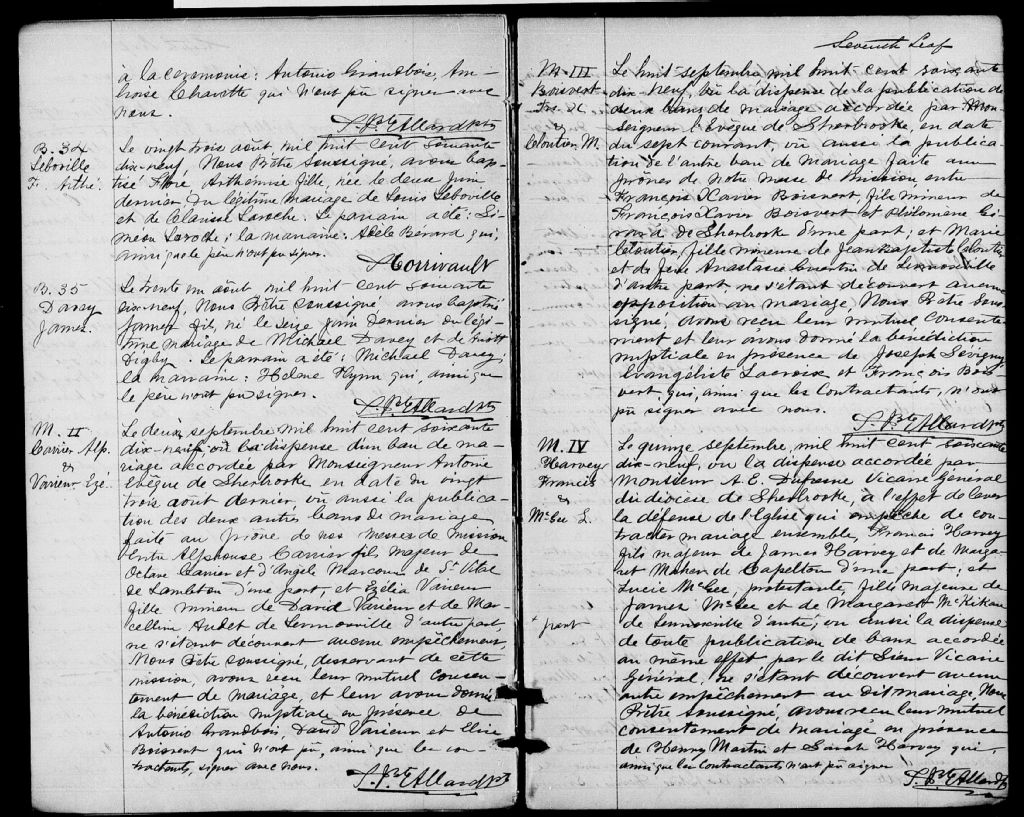 à la ceremonie: Antonio Grandbois, Am-
broise Charette qui n'ont pu signer avec
nous.
J. Bte Allard ptr
B. 34
Leboville
F. Arthé.
Le vingt trois août, mil huit cent soixante
dix-neuf, Nous Prêtre soussigné, avons bap-
tisé Flore Arthémise fille, née le deux juin
dernier du légitime mariage de Louis Leboville
et de Clarisse Laroche. Le parrain a été: Si-
méon Laroche; la marraine: Adele Bérard qui,
ainsi que le père n'ont pu signer.
Morrivault
B. 35
Davey
James.
Le trente en août, mil huit cent soixante
dix-neuf, Nous Prêtre soussigné avons baptisé
James fil, né le seize juin dernier du légi-
time mariage de Michael Davey et de
Digby. Le parrain a été: Michael Davey;
la marraine: Helene Flynn qui, ainsi que
le père n'ont pu signer.
J. Bte Allard ptr
M. II
Carrier Alp.
&
Varieur Ezé.
Le deux septembre mil huit cent soixante
dix-neuf, vu la dispense d'un ban de ma-
riage accordée par Monseigneur Antoine
Evêque de Sherbrooke en date du vingt
trois août dernier, vû aussi la publica-
tion des deux autres bans de mariage
faite au prône de nos messes de Mission
Entre Alphonse Carrier fils majeur de
Octave Carrier et d'Angele Marcoux de St Vital
de Lambton d'une part, et Ezélia Varieur
fille mineur de David Varieur et de Mar-
celline Audet de Lennoxville d'autre part,
ne s'étant découvert aucun empêchement,
Nous Prêtre soussigné, desservant de cette
mission, avons reçu leur mutuel consen-
tement de mariage, et leur avons donné
la bénédiction nuptiale en présence de
Antonio Grandbois, David Varieur et Elise
Boisvert qui n'ont pu, ainsi que les con-
tractants, signer avec nous.
J. Bte Allard ptr
Seventh Leaf
M. III
Boisvert
Frs. X
&
Cloutier, M.
Le huit septembre mil huit cent soixante
dix-neuf, vu la dispense de la publication de
deux bans de mariage accordée par Mon-
Seigneur l'Evêque de Sherbrooke, en date
du sept courant, vû aussi la publica-
tion de l'autre ban de Mariage faite aux
prônes de notre messe de mission, entre
François Xavier Boisvert, fils mineur de
François Xavier Boisvert et Philomene Gi-
rard de Sherbrooke d'une part; et Marie
Cloutier, fille mineure de Jean Baptiste Cloutier
et de feue Anastasie Guertin de Lennoxville
d'autre part, ne s'étant découvert aucune
opposition au mariage, Nous Prêtre sous-
signé, avons reçu leur mutuel consente-
ment et leur avons donné la bénédiction
nuptiale en présence de Joseph Sévigny
Evangéliste Lacroix et François Bois-
vert, qui, ainsi que les Contractants, n'ont
pu signer avec nous.
J. Bte Allard ptr
M. IV
Harvey
Francis
&
McGee L.
Le quinze septembre, mil huit cent soixante
dix-neuf, vu la dispense accordée par
Monsieur A. E. Dufresne Vicaire Général
du diocese de Sherbrooke, à l'effet de lever
la défense de l'Eglise qui empêche de con-
tracter mariage ensemble, Francis Harvey
fils majeur de James Harvey et de Marga-
ret Maher de Capelton d'une part; et
Lucie McGee, protestante, fille majeure de
James McGee et de Margaret McKikan
+ part
de Lennoxville d'autre+; vu aussi la dispense
de toute publication de bans accordée
au même effet par le dit Sieur Vicaire
Général, ne s'étant découvert aucun
autre empêchement au dit mariage, Nous
Prêtre soussigné, avons reçu leur mutuel
consentement de mariage en présence
de Henry Martin et Sarah Harvey qui,
ainsi que les Contractants n'ont pu signer
J. Bte Allard ptr